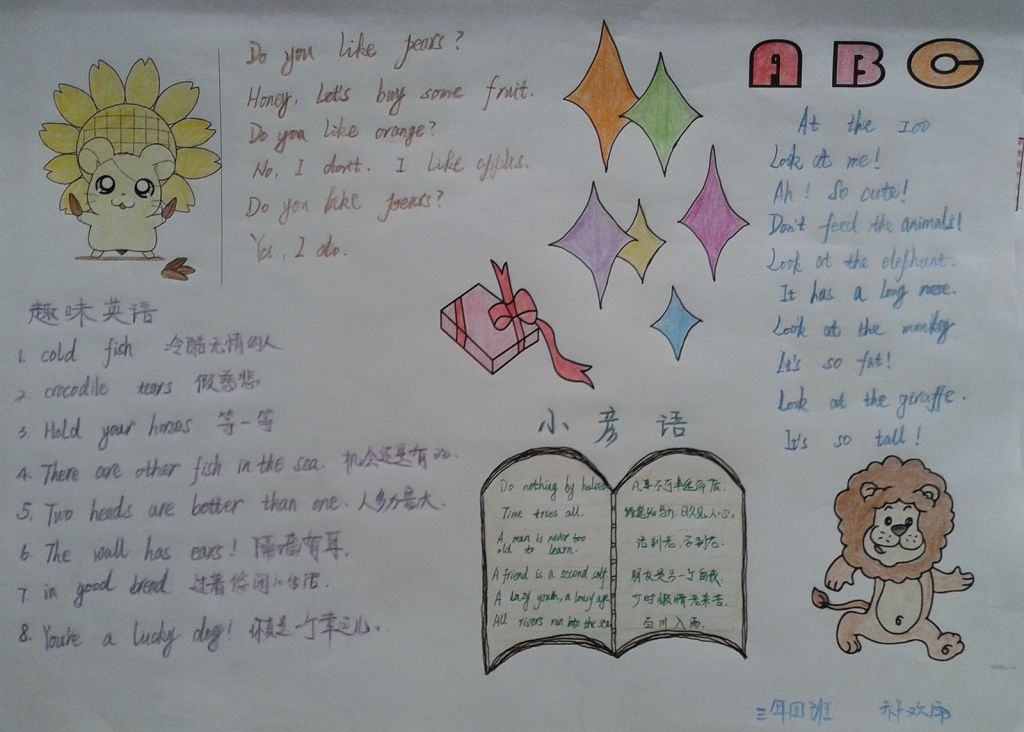 Do you like pears?
Honey, Let's buy some fruit.
Do you like orange?
No, I don't. I like apples.
Do you like pears?
Yes, I do.
ABC
At the zoo
Look at me!
Ah! So cute!
Don't feed the animals!
Look at the elephant.
It has a long nose.
Look at the monkey
It's so fat!
Look at the giraffe.
It's so tall!
趣味英语
1. cold fish 冷酷无情的人
2. crocodile tears 假慈悲
3. Hold your horses 等一等
4. There are other fish in the sea. 机会还是有的.
5. Two heads are better than one. 人多力量大.
6. The wall has ears! 隔墙有耳.
7. in good bread 过着悠闲的生活.
8. You're a lucky dog! 你真是一个幸运儿.
小彦语
Do nothing by halves 凡事不可半途而废.
Time tries all. 路遥知马力,日久见人心.
A man is never too
old to learn. 活到老,学到老.
A friend is a second self 朋友是另一个自我.
A lazy youth, a lousy age 少时懒惰老来苦.
All rivers run into the sea 百川入海.
6
6
三年四班